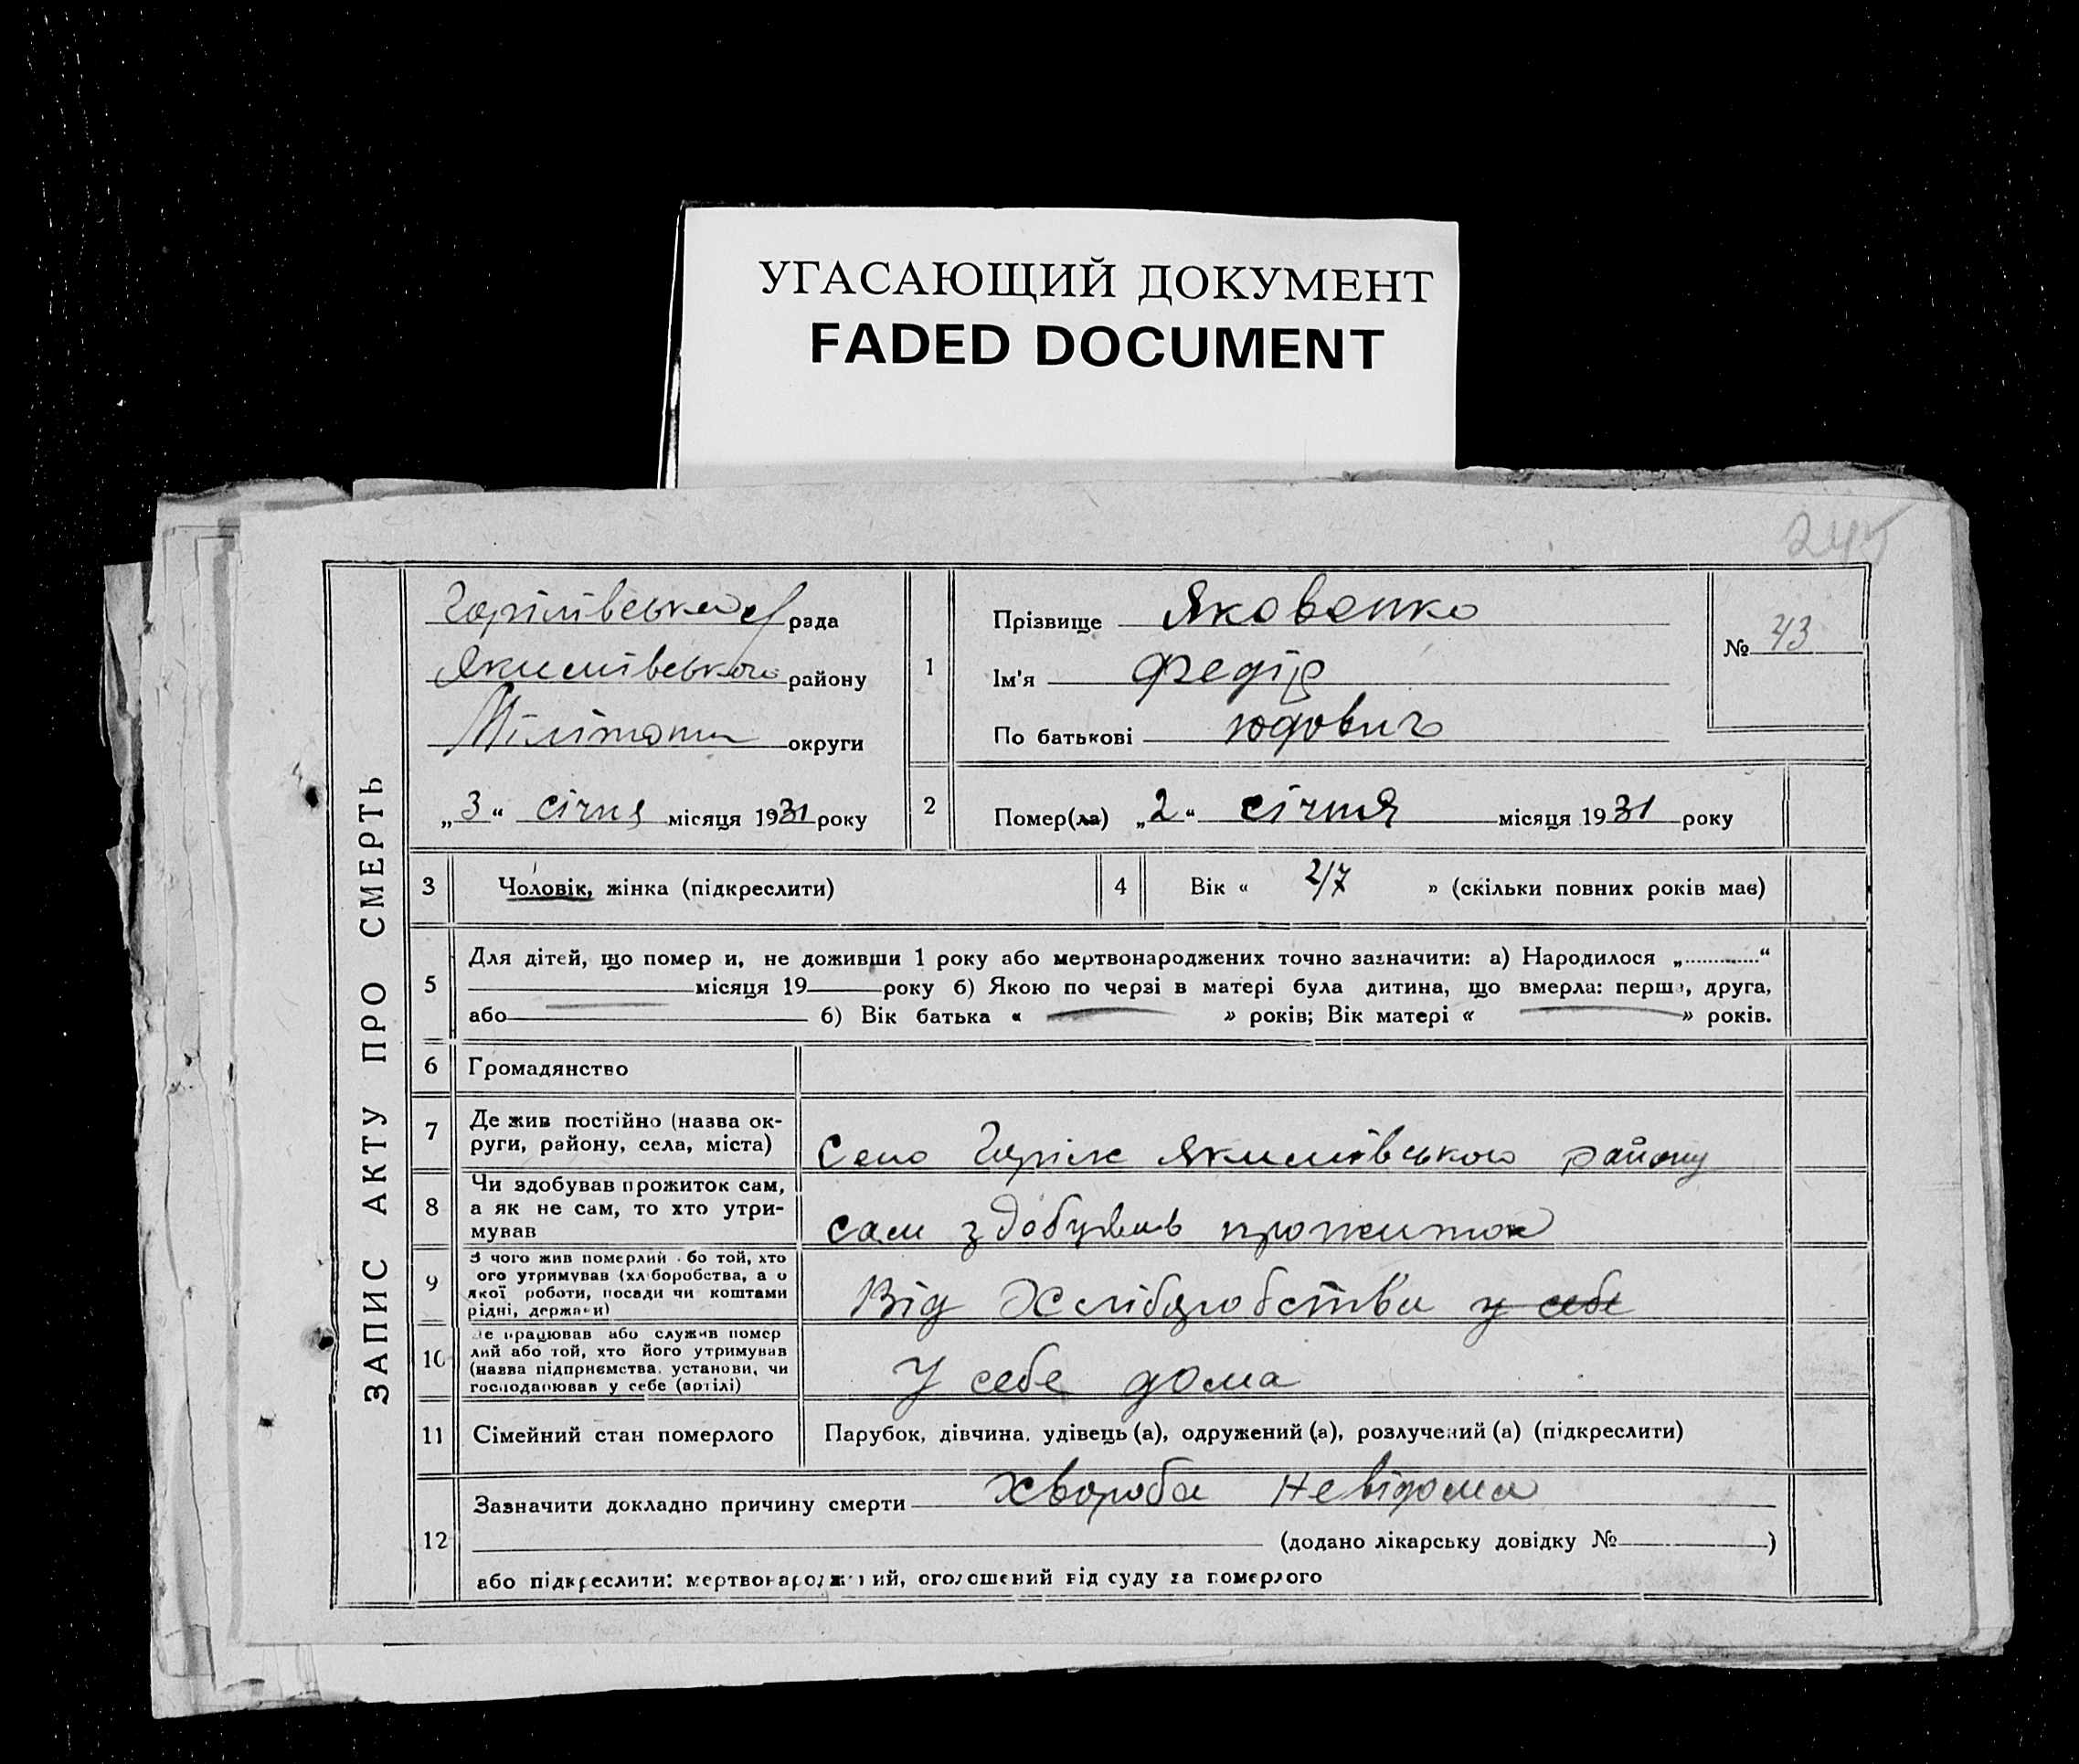 УГАСАЮЩИЙ ДОКУМЕНТ
FADED DOCUMENT
245
ЗАПИС АКТУ ПРО СМЕРТЬ
рада
Якимівського району
округи
„3“ січня місяця 1931 року
1
Прізвище Яковенко
Ім'я Федір
По батькові Юдович
№ 43
2
Помер(ла) „2“ січня місяця 1931 року
3
Чоловік, жінка (підкреслити)
4
Вік « 27 » (скільки повних років має)
5
Для дітей, що помер и, не доживши 1 року або мертвонароджених точно зазначити: а) Народилося „............“
місяця 19 року б) Якою по черзі в матері була дитина, що вмерла: перша, друга,
або б) Вік батька « » років; Вік матері « » років.
6
Громадянство
7
Де жив постійно (назва ок-
руги, району, села, міста)
Село Якимівського району
8
Чи здобував прожиток сам,
а як не сам, то хто утри-
мував
сам здобував прожиток
9
З чого жив померлий або той, хто
ого утримував (хліборобства, а о
якої роботи, посади чи коштами
рідні, держави)
Від Хліборобства у себе
10
Де працював або служив помер
лий або той, хто його утримував
(назва підприємства, установи, чи
господарював у себе (артілі)
У себе дома
11
Сімейний стан померлого
Парубок, дівчина, удівець (а), одружений (а), розлучений (а) (підкреслити)
12
Зазначити докладно причину смерти Хвороба Невідома
(додано лікарську довідку № )
або підкреслити: мертвонароджений, оголошений від суду за померлого